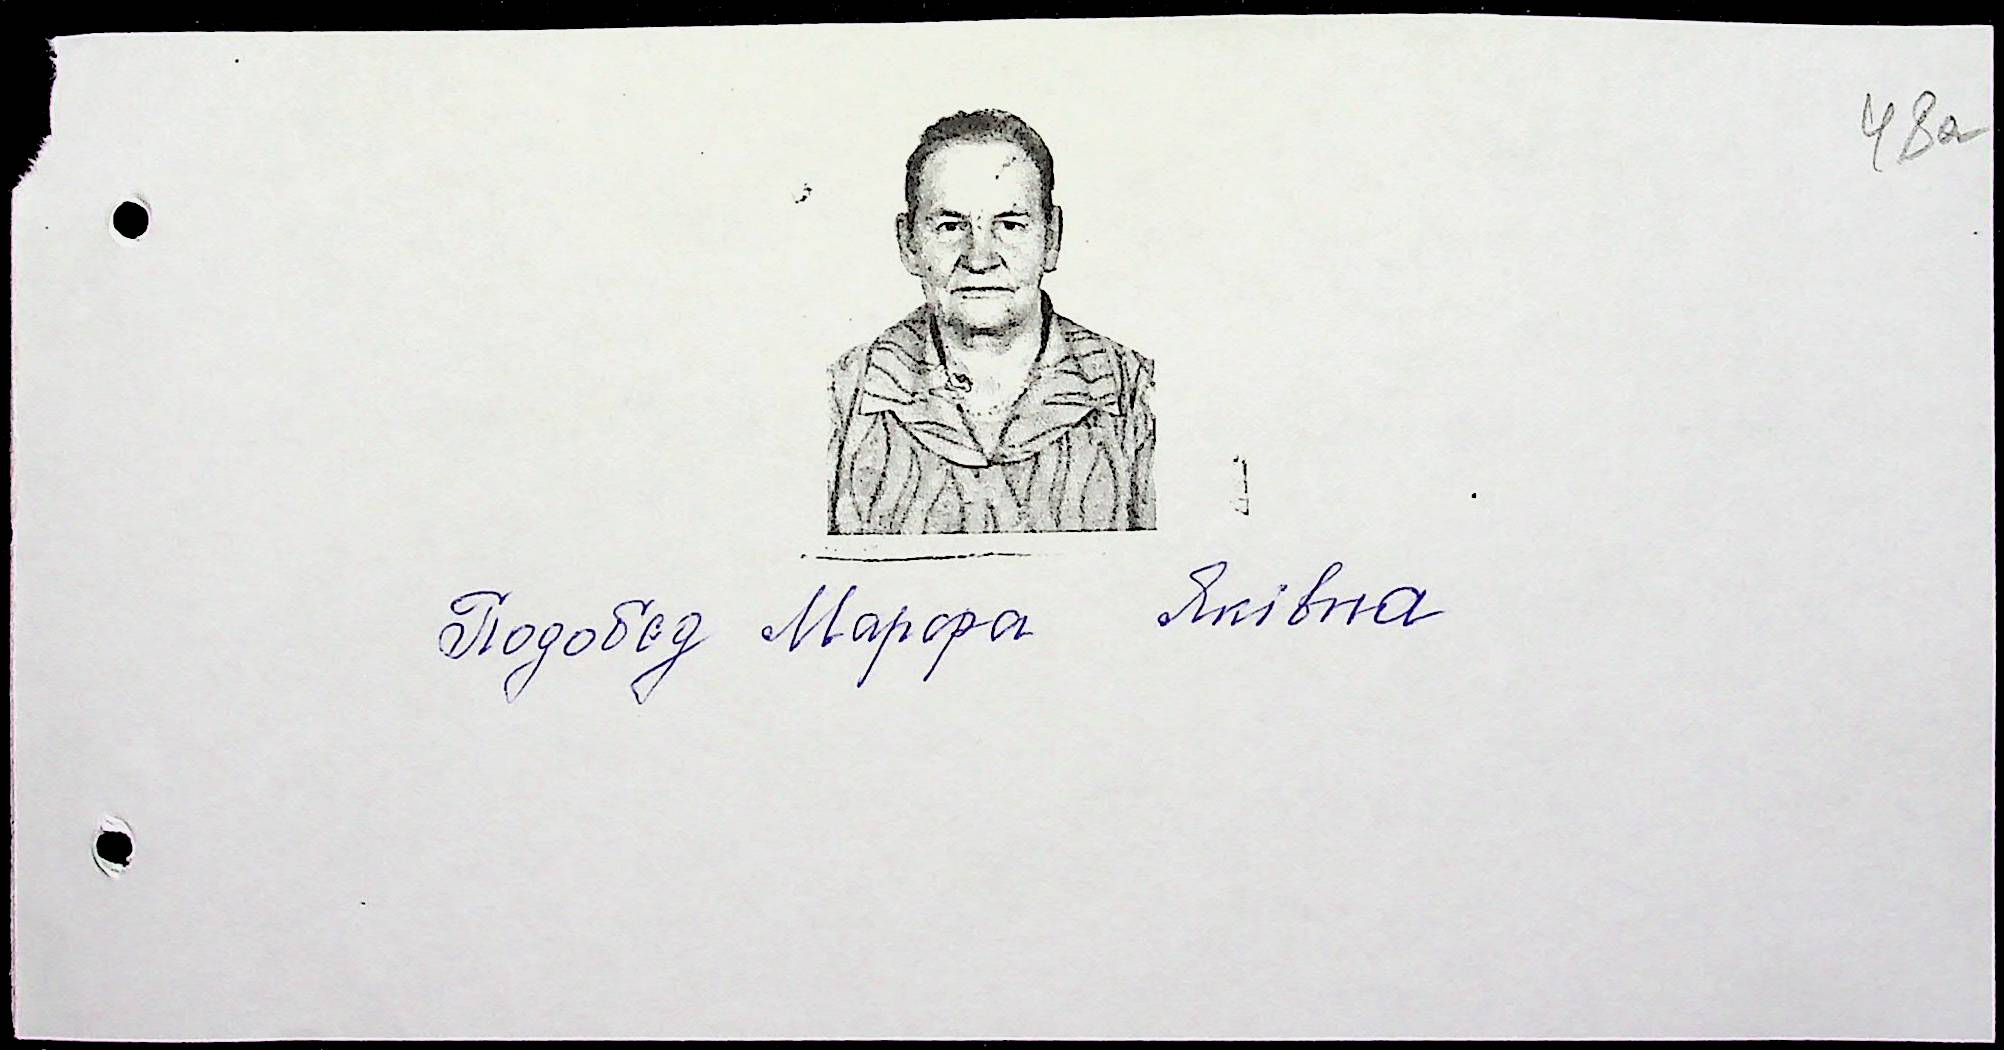 48а
Подобєд Марфа Яківна